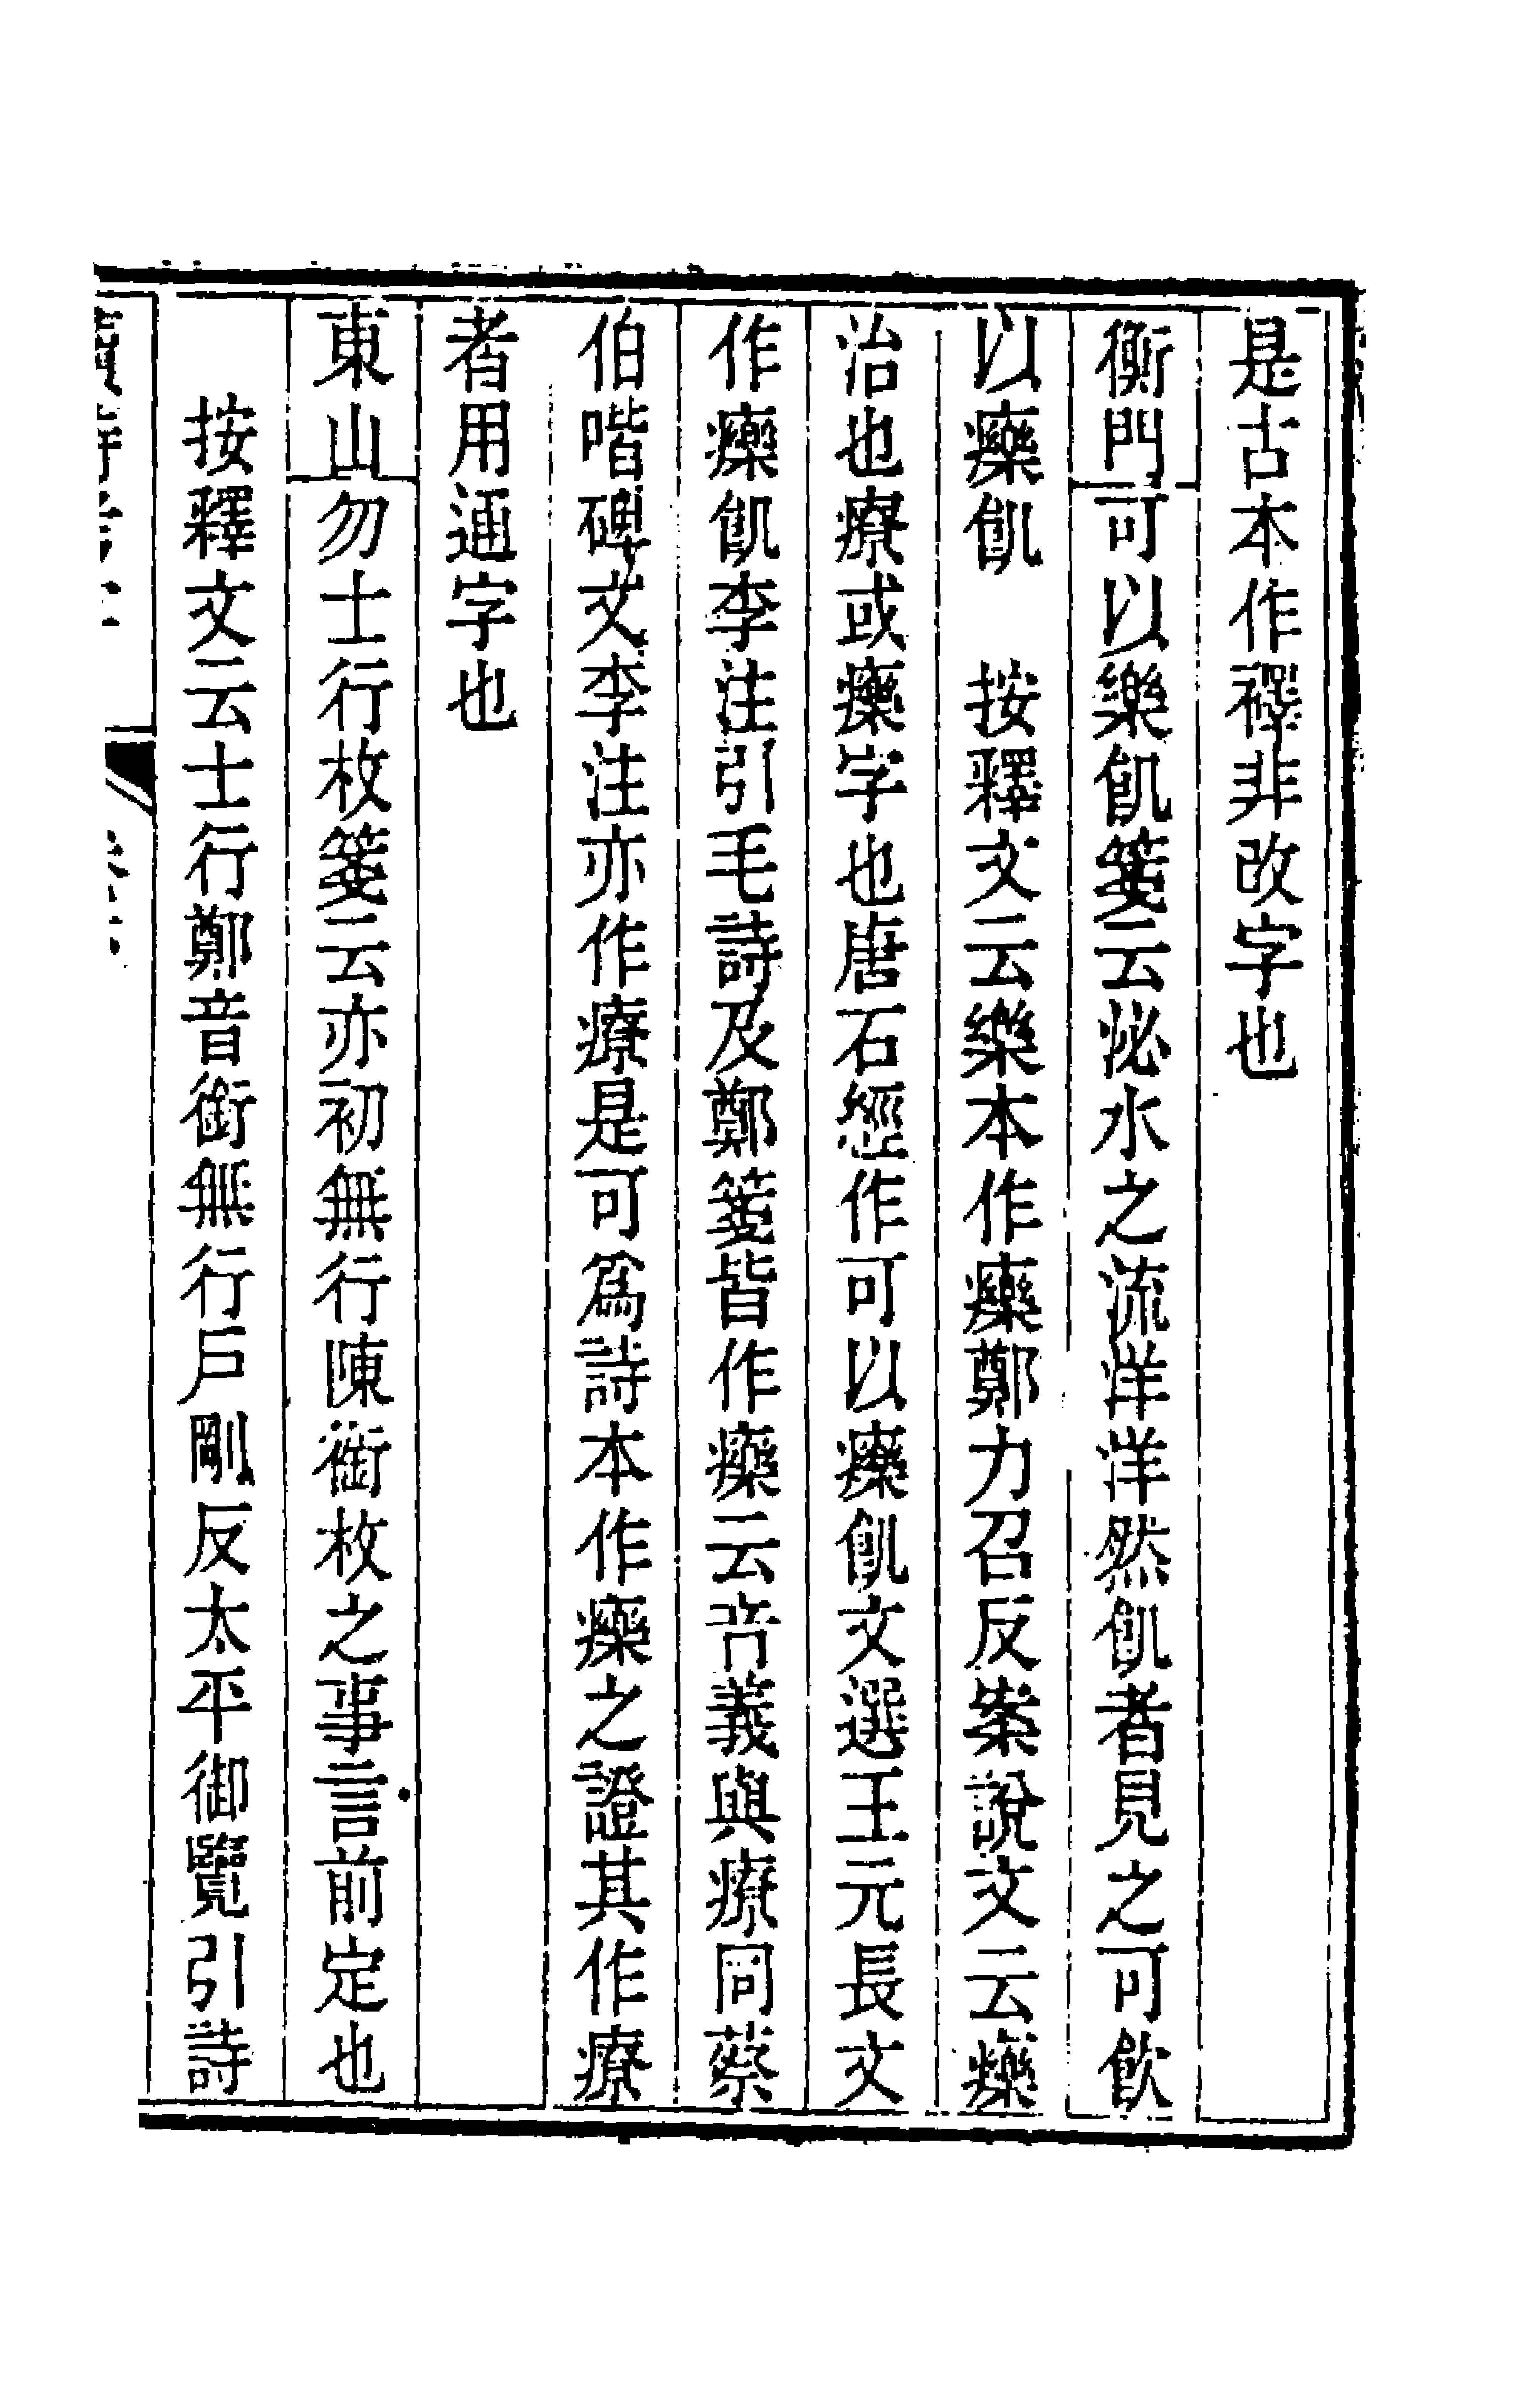 是古本作襗非改字也
衡門可以樂飢箋云泌水之流洋洋然飢者見之可飲
以𤻲飢　按釋文云樂本作𤻲鄭力召反案說文云𤻲
治也療或𤻲字也唐石經作可以𤻲飢文選王元長文
作𤻲飢李注引毛詩及鄭箋皆作𤻲云音義與療同蔡
伯喈碑文李注亦作療是可爲詩本作𤻲之證其作療
者用通字也
東山勿士行枚箋云亦初無行陳銜枚之事言前定也
按釋文云士行鄭音銜無行戶剛反太平御覽引詩